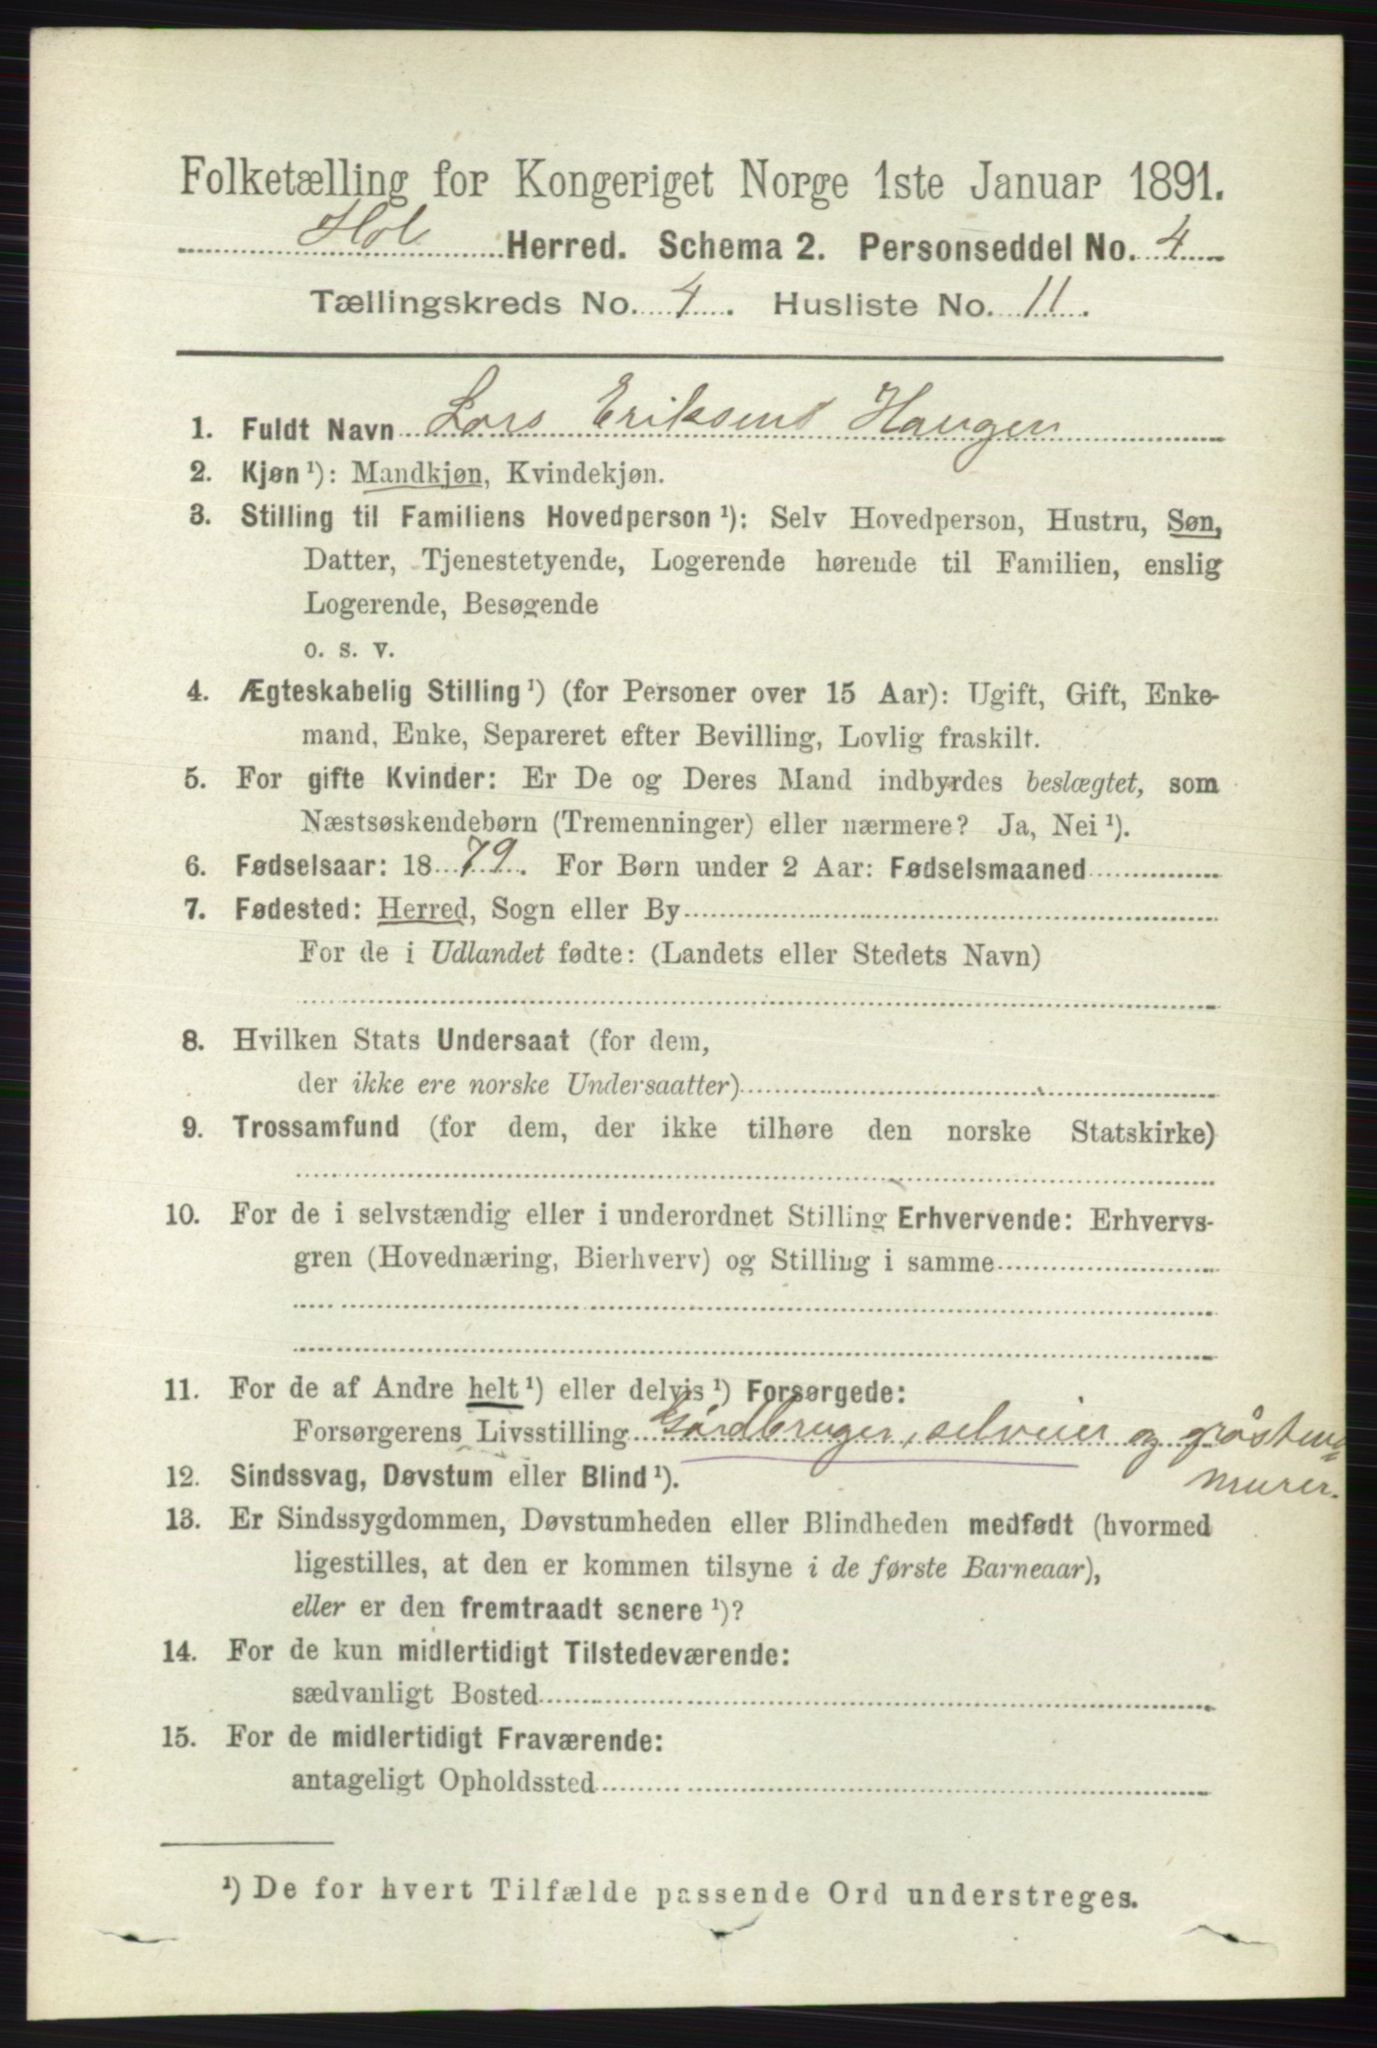 Folketælling for Kongeriget Norge 1ste Januar 1891.
Hol Herred. Schema 2. Personseddel No. 4
Tællingskreds No. 4. Husliste No. 11.
1. Fuldt Navn Lars Eriksen Haugen
2. Kjøn ¹): Mandkjøn, Kvindekjøn.
3. Stilling til Familiens Hovedperson ¹): Selv Hovedperson, Hustru, Søn,
Datter, Tjenestetyende, Logerende hørende til Familien, enslig
Logerende, Besøgende
o. s. v.
4. Ægteskabelig Stilling ¹) (for Personer over 15 Aar): Ugift, Gift, Enke-
mand, Enke, Separeret efter Bevilling, Lovlig fraskilt.
5. For gifte Kvinder: Er De og Deres Mand indbyrdes beslægtet, som
Næstsøskendebørn (Tremenninger) eller nærmere? Ja, Nei ¹).
6. Fødselsaar: 1879. For Børn under 2 Aar: Fødselsmaaned
7. Fødested: Herred, Sogn eller By
For de i Udlandet fødte: (Landets eller Stedets Navn)
8. Hvilken Stats Undersaat (for dem,
der ikke ere norske Undersaatter)
9. Trossamfund (for dem, der ikke tilhøre den norske Statskirke)
10. For de i selvstændig eller i underordnet Stilling Erhvervende: Erhvervs-
gren (Hovednæring, Bierhverv) og Stilling i samme
11. For de af Andre helt ¹) eller delvis ¹) Forsørgede:
Forsørgerens Livsstilling Gårdbruger, selveier og gråstens=
murer.
12. Sindssvag, Døvstum eller Blind ¹).
13. Er Sindssygdommen, Døvstumheden eller Blindheden medfødt (hvormed
ligestilles, at den er kommen tilsyne i de første Barneaar),
eller er den fremtraadt senere ¹)?
14. For de kun midlertidigt Tilstedeværende:
sædvanligt Bosted
15. For de midlertidigt Fraværende:
antageligt Opholdssted
¹) De for hvert Tilfælde passende Ord understreges.